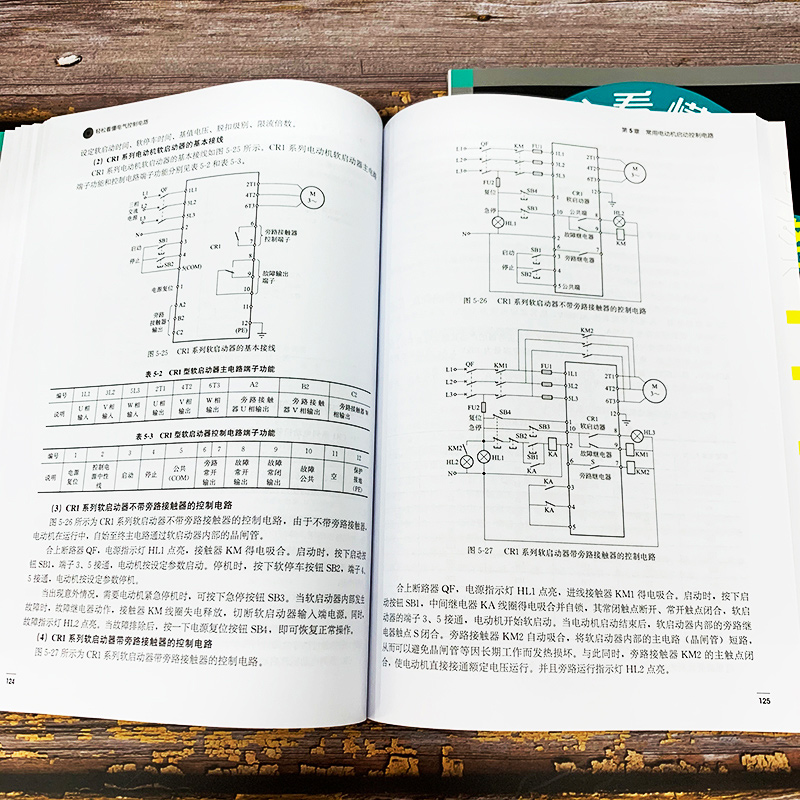 轻松看懂电气控制电路
设定软启动时间、软停车时间、基值电压、脱扣级别、限流倍数。
（2）CR1 系列电动机软启动器的基本接线
CR1 系列电动机软启动器的基本接线如图 5-25 所示。CR1 系列电动机软启动器主电路
端子功能和控制电路端子功能分别见表 5-2 和表 5-3。
L1 QF 1L1 2T1
三相 L2 3L2 4T2 M 3~
交流
电源 L3 5L3 6T3
N 2
启动 SB1 3
停止 SB2 4
5(COM)
CR1
旁路接触器
控制端子
7
8
故障输出
端子
9
10
电源复位 1
A2
旁路
接触器 B2
输出 C2
11
12
(PE)
图 5-25 CR1 系列软启动器的基本接线
表 5-2 CR1 型软启动器主电路端子功能
编号 1L1 3L2 5L3 2T1 4T2 6T3 A2 B2 C2
说明 U 相输入 V 相输入 W 相输入 U 相输出 V 相输出 W 相输出 旁路接触器 U 相输出 旁路接触器 V 相输出 旁路接触器 W 相输出
表 5-3 CR1 型软启动器控制电路端子功能
编号 1 2 3 4 5 6 7 8 9 10 11 12
说明 电源复位 控制电源中性线 启动 停止 公共(COM) 旁路常开输出 故障常开输出 故障常闭输出 故障公共 空 保护接地(PE)
（3）CR1 系列软启动器不带旁路接触器的控制电路
图 5-26 所示为 CR1 系列软启动器不带旁路接触器的控制电路，由于不带旁路接触器，
电动机在运行中，自始至终主电路通过软启动器内部的晶闸管。
合上断路器 QF，电源指示灯 HL1 点亮，接触器 KM 得电吸合。启动时，按下启动按
钮 SB1，端子 3、5 接通，电动机按设定参数启动。停机时，按下软停车按钮 SB2，端子 4、
5 接通，电动机按设定参数停机。
当出现意外情况，需要电动机紧急停机时，可按下急停按钮 SB3。当软启动器内部发生
故障时，故障继电器动作，接触器 KM 线圈失电释放，切断软启动器输入端电源。同时，
故障指示灯 HL2 点亮。当故障排除后，按一下电源复位按钮 SB4，即可恢复正常操作。
（4）CR1 系列软启动器带旁路接触器的控制电路
图 5-27 所示为 CR1 系列软启动器带旁路接触器的控制电路。
124
第 5 章 常用电动机启动控制电路
L1 QF KM FU1 1L1 2T1
L2 3L2 4T2 M 3~
L3 5L3 6T3
FU2
CR1
软启动器
复位 SB4 1
急停 SB3 10 公共端 8 HL2
HL1 故障继电器 9 KM
N 2
6 7
旁路继电器
启动 SB1 3
停止 SB2 4
5 公共端
12
图 5-26 CR1 系列软启动器不带旁路接触器的控制电路
KM2
L1 QF KM1 FU1 1L1 2T1
L2 3L2 4T2 M 3~
L3 5L3 6T3
FU2
复位 SB4 1
急停 SB3 10
CR1
软启动器
12
8 HL3
KM2 SB2 SB1 KA
HL2 HL1
故障继电器 9 KM1
S
旁路继电器 7 KM2
N 2
KA 3
KA 4
5
图 5-27 CR1 系列软启动器带旁路接触器的控制电路
合上断路器 QF，电源指示灯 HL1 点亮，进线接触器 KM1 得电吸合。启动时，按下启
动按钮 SB1，中间继电器 KA 线圈得电吸合并自锁，其常闭触点断开、常开触点闭合，软启
动器的端子 3、5 接通，电动机开始软启动。当电动机启动结束后，软启动器内部的旁路继
电器触点 S 闭合。旁路接触器 KM2 自动吸合，将软启动器内部的主电路（晶闸管）短路，
从而可以避免晶闸管等因长期工作而发热损坏。与此同时，旁路接触器 KM2 的主触点闭
合，使电动机直接接通额定电压运行。并且旁路运行指示灯 HL2 点亮。
125